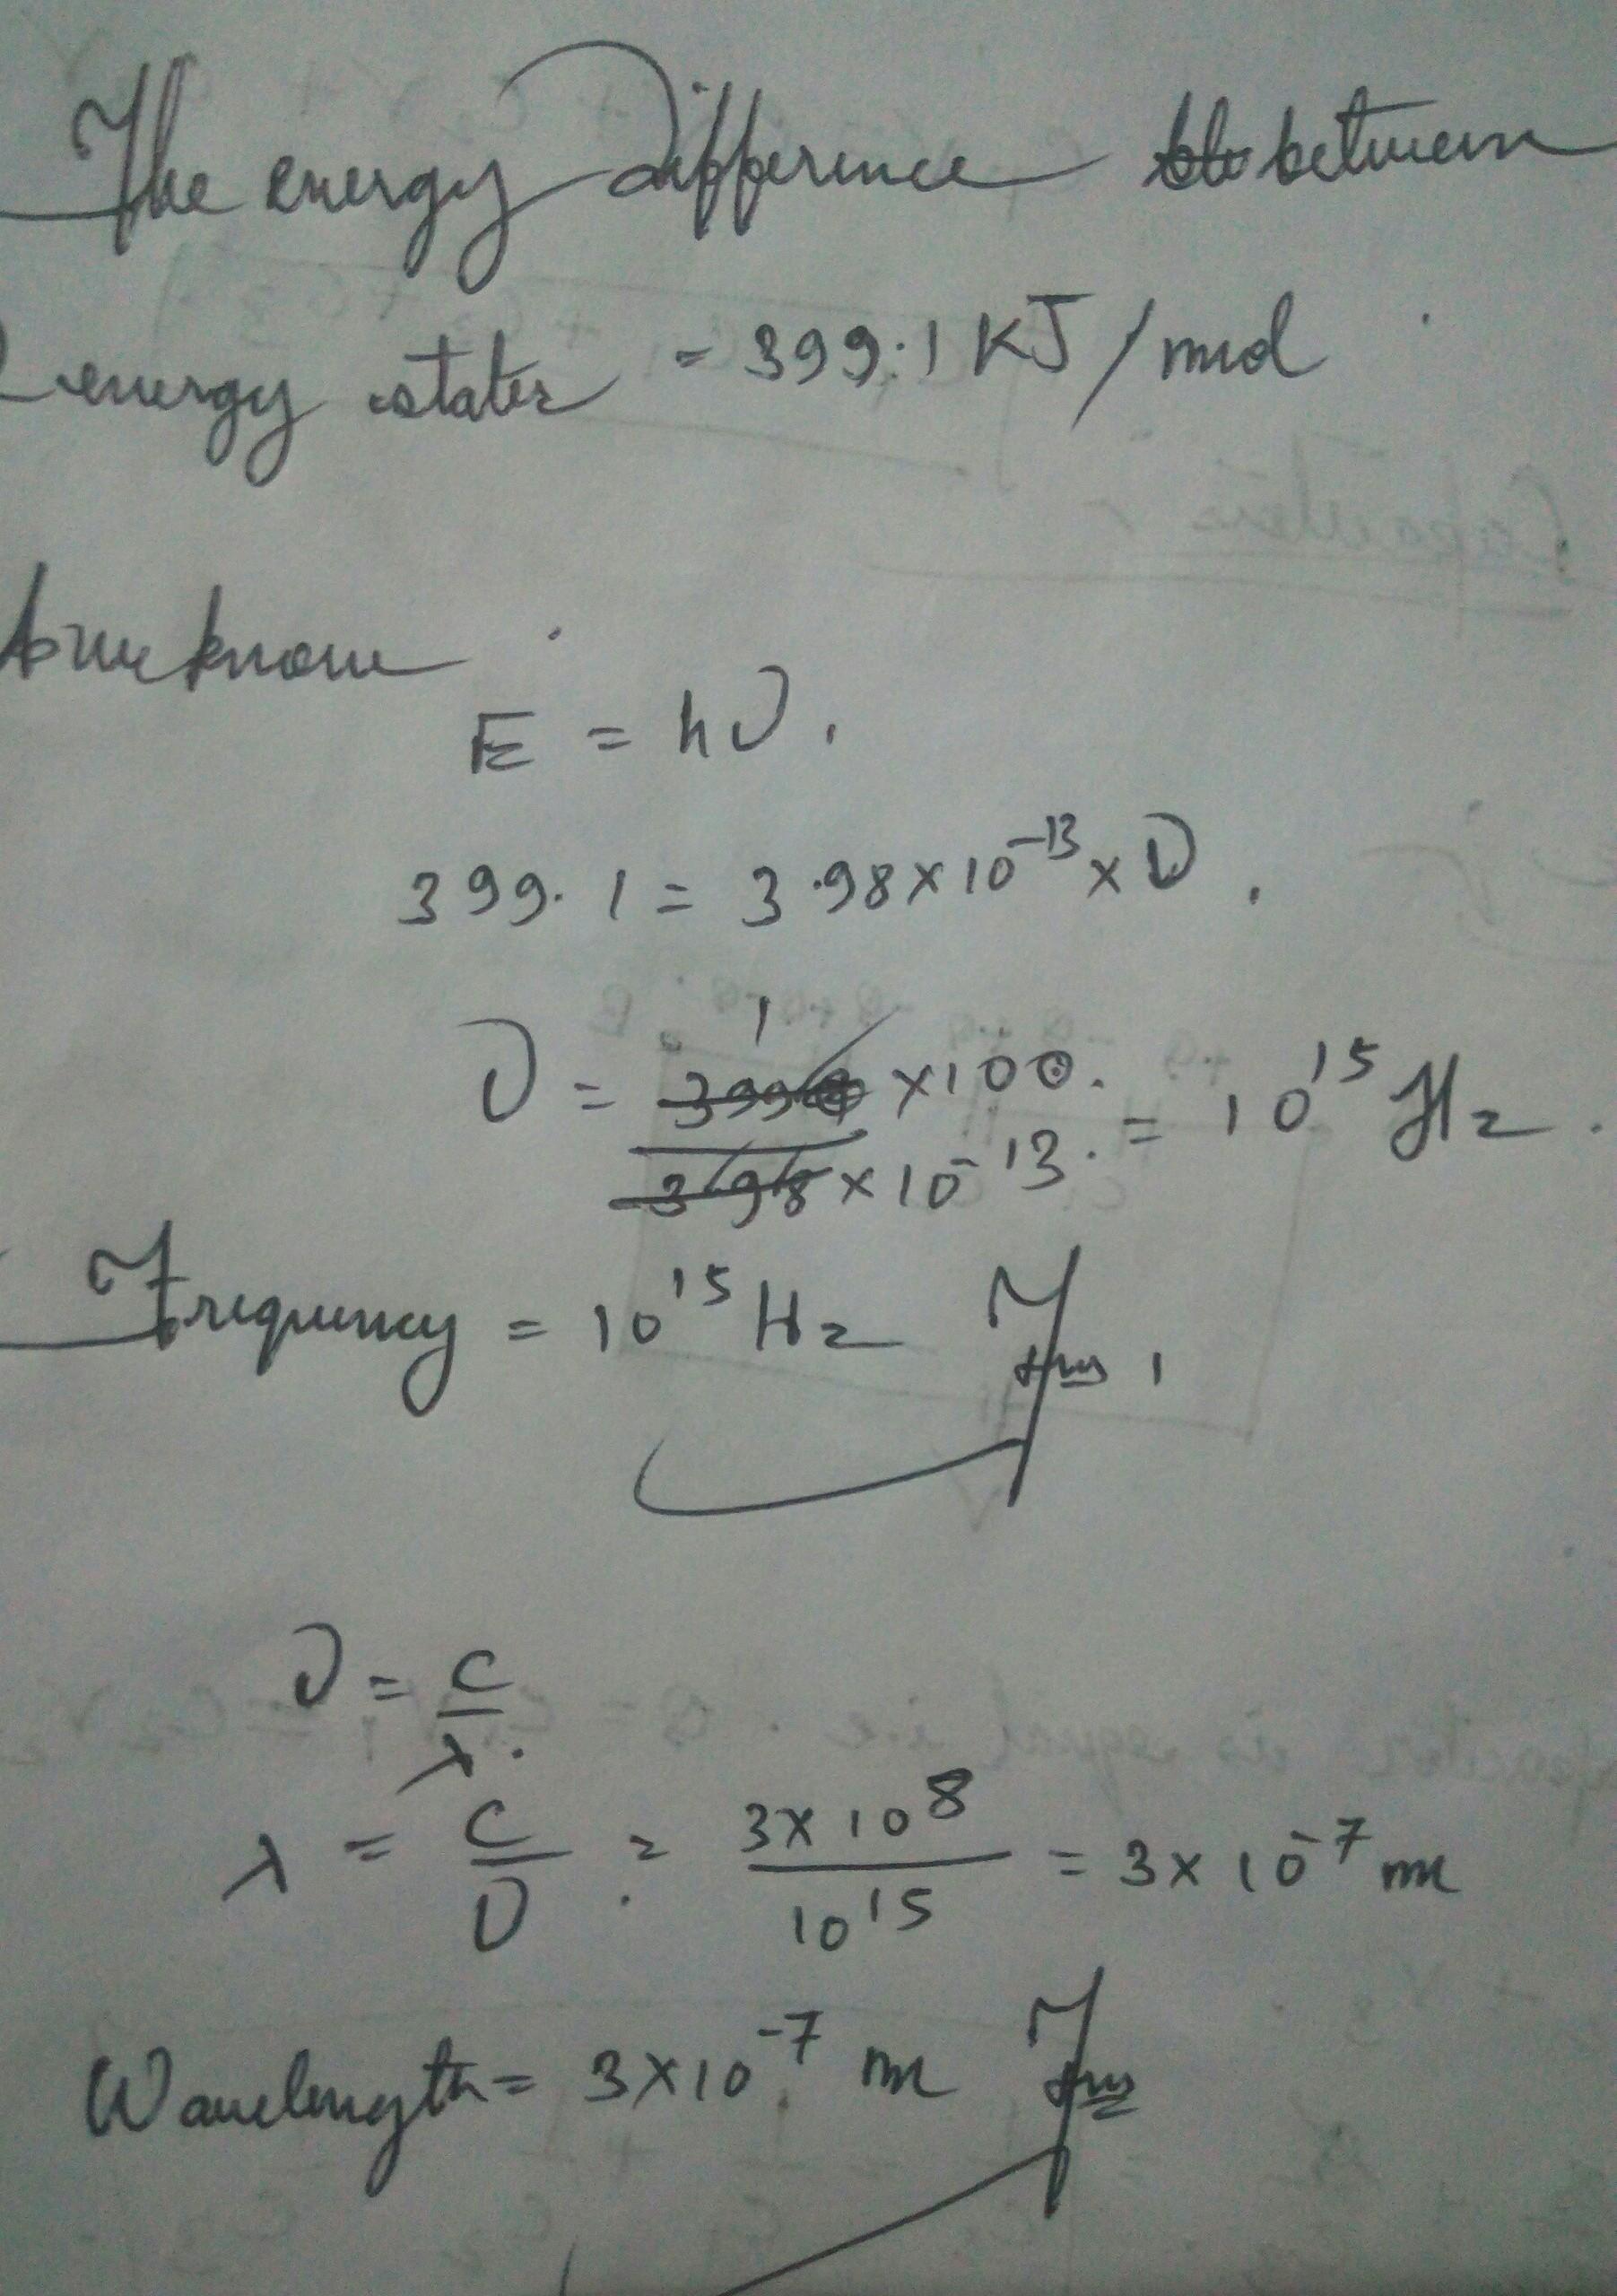 The energy difference between
2 energy states = 399.1 KJ/mol
As we know
E = hν.
399.1 = 3.98×10⁻¹³×ν.
ν = 1 399 ×100. / 3.98×10⁻¹³. = 10¹⁵ Hz.
Frequency = 10¹⁵ Hz Ans
ν = C/λ.
λ = C/ν = 3×10⁸/10¹⁵ = 3×10⁻⁷ m
Wavelength = 3×10⁻⁷ m Ans